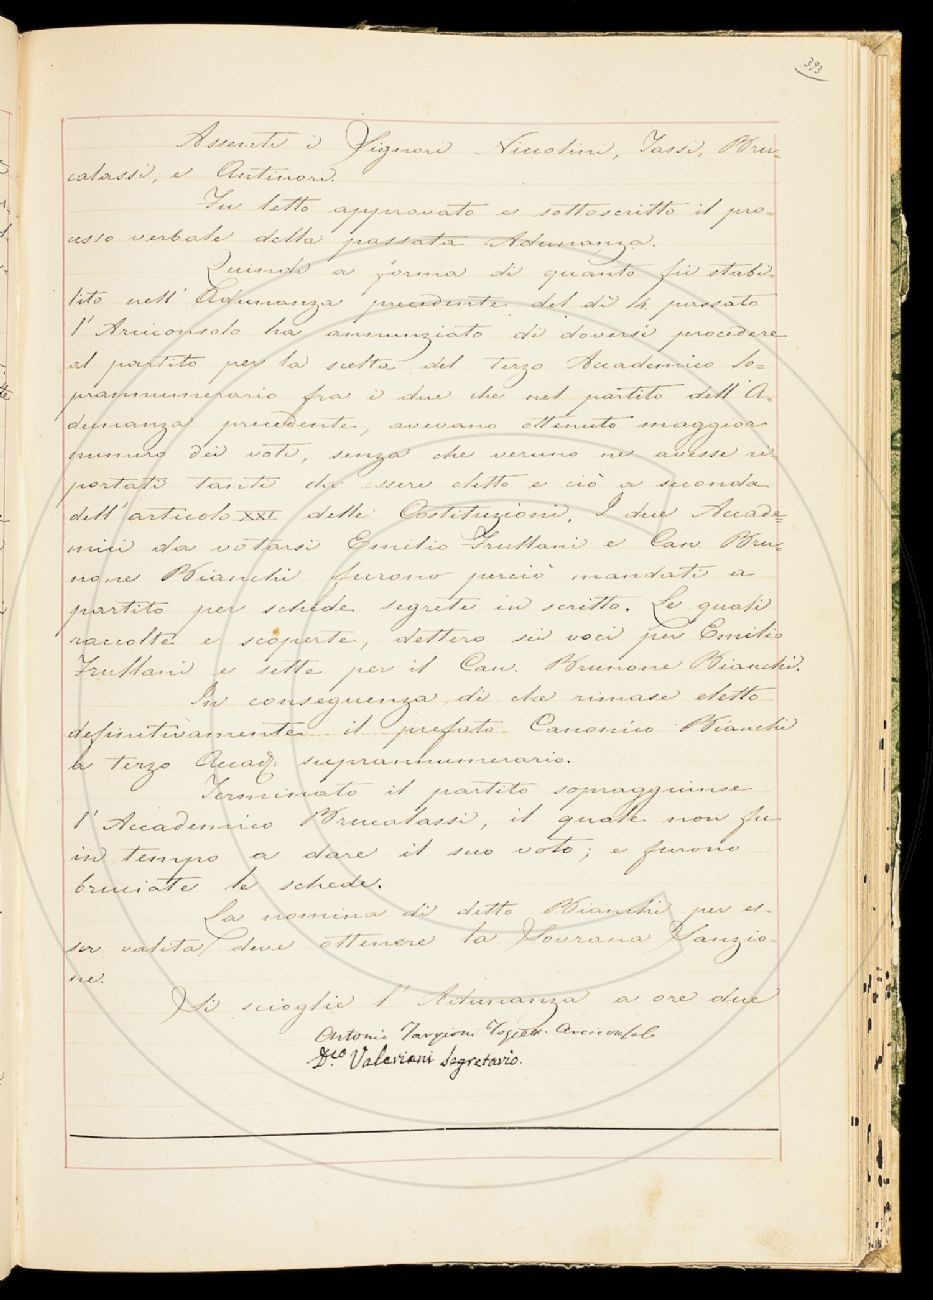 393
Assenti i Signori Niccolini, Tassi, Bru=
calassi, e Antinori.
Fu letto approvato e sottoscritto il pro=
cesso verbale della passata Adunanza.
Quindi a forma di quanto fu stabi=
lito nell' Adunanza precedente del dì 4 passato
l' Arciconsolo ha annunziato di doversi procedere
al partito per la scelta del terzo Accademico So=
prannumerario fra i due che nel partito dell' A=
dunanza precedente, avevano ottenuto maggior
numero dei voti, senza che veruno ne avesse ri=
portati tanti da essere eletto e ciò a seconda
dell' articolo XXI delle Costituzioni. I due Accade=
mici da votarsi Emilio Frullani e Can. Bru=
none Bianchi furono perciò mandati a
partito per schede segrete in scritto. Le quali
raccolte e scoperte, dettero sei voci per Emilio
Frullani e sette per il Can. Brunone Bianchi.
In conseguenza di che rimase eletto
definitivamente il prefato Canonico Bianchi
a terzo Accad. suprannumerario.
Terminato il partito sopraggiunse
l' Accademico Brucalassi, il quale non fu
in tempo a dare il suo voto; e furono
bruciate le schede.
La nomina di detto Bianchi per es=
ser valita deve ottenere la Sovrana Sanzio=
ne.
Si scioglie l' Adunanza a ore due
Antonio Targioni Tozzetti Arciconsolo
D.co Valeriani Segretario.